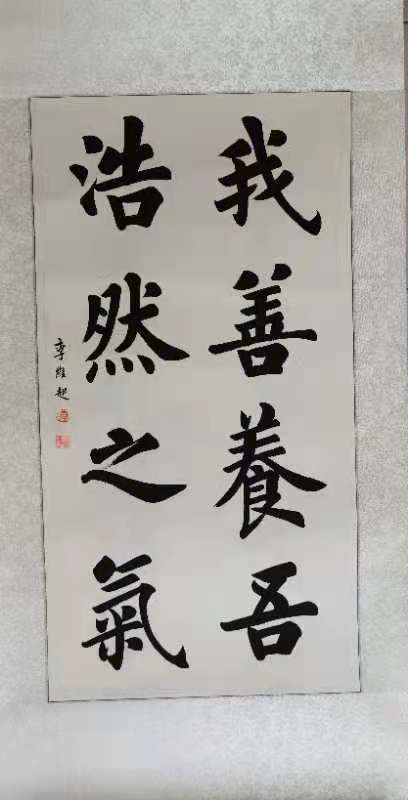 我善養吾
浩然之氣
李維起